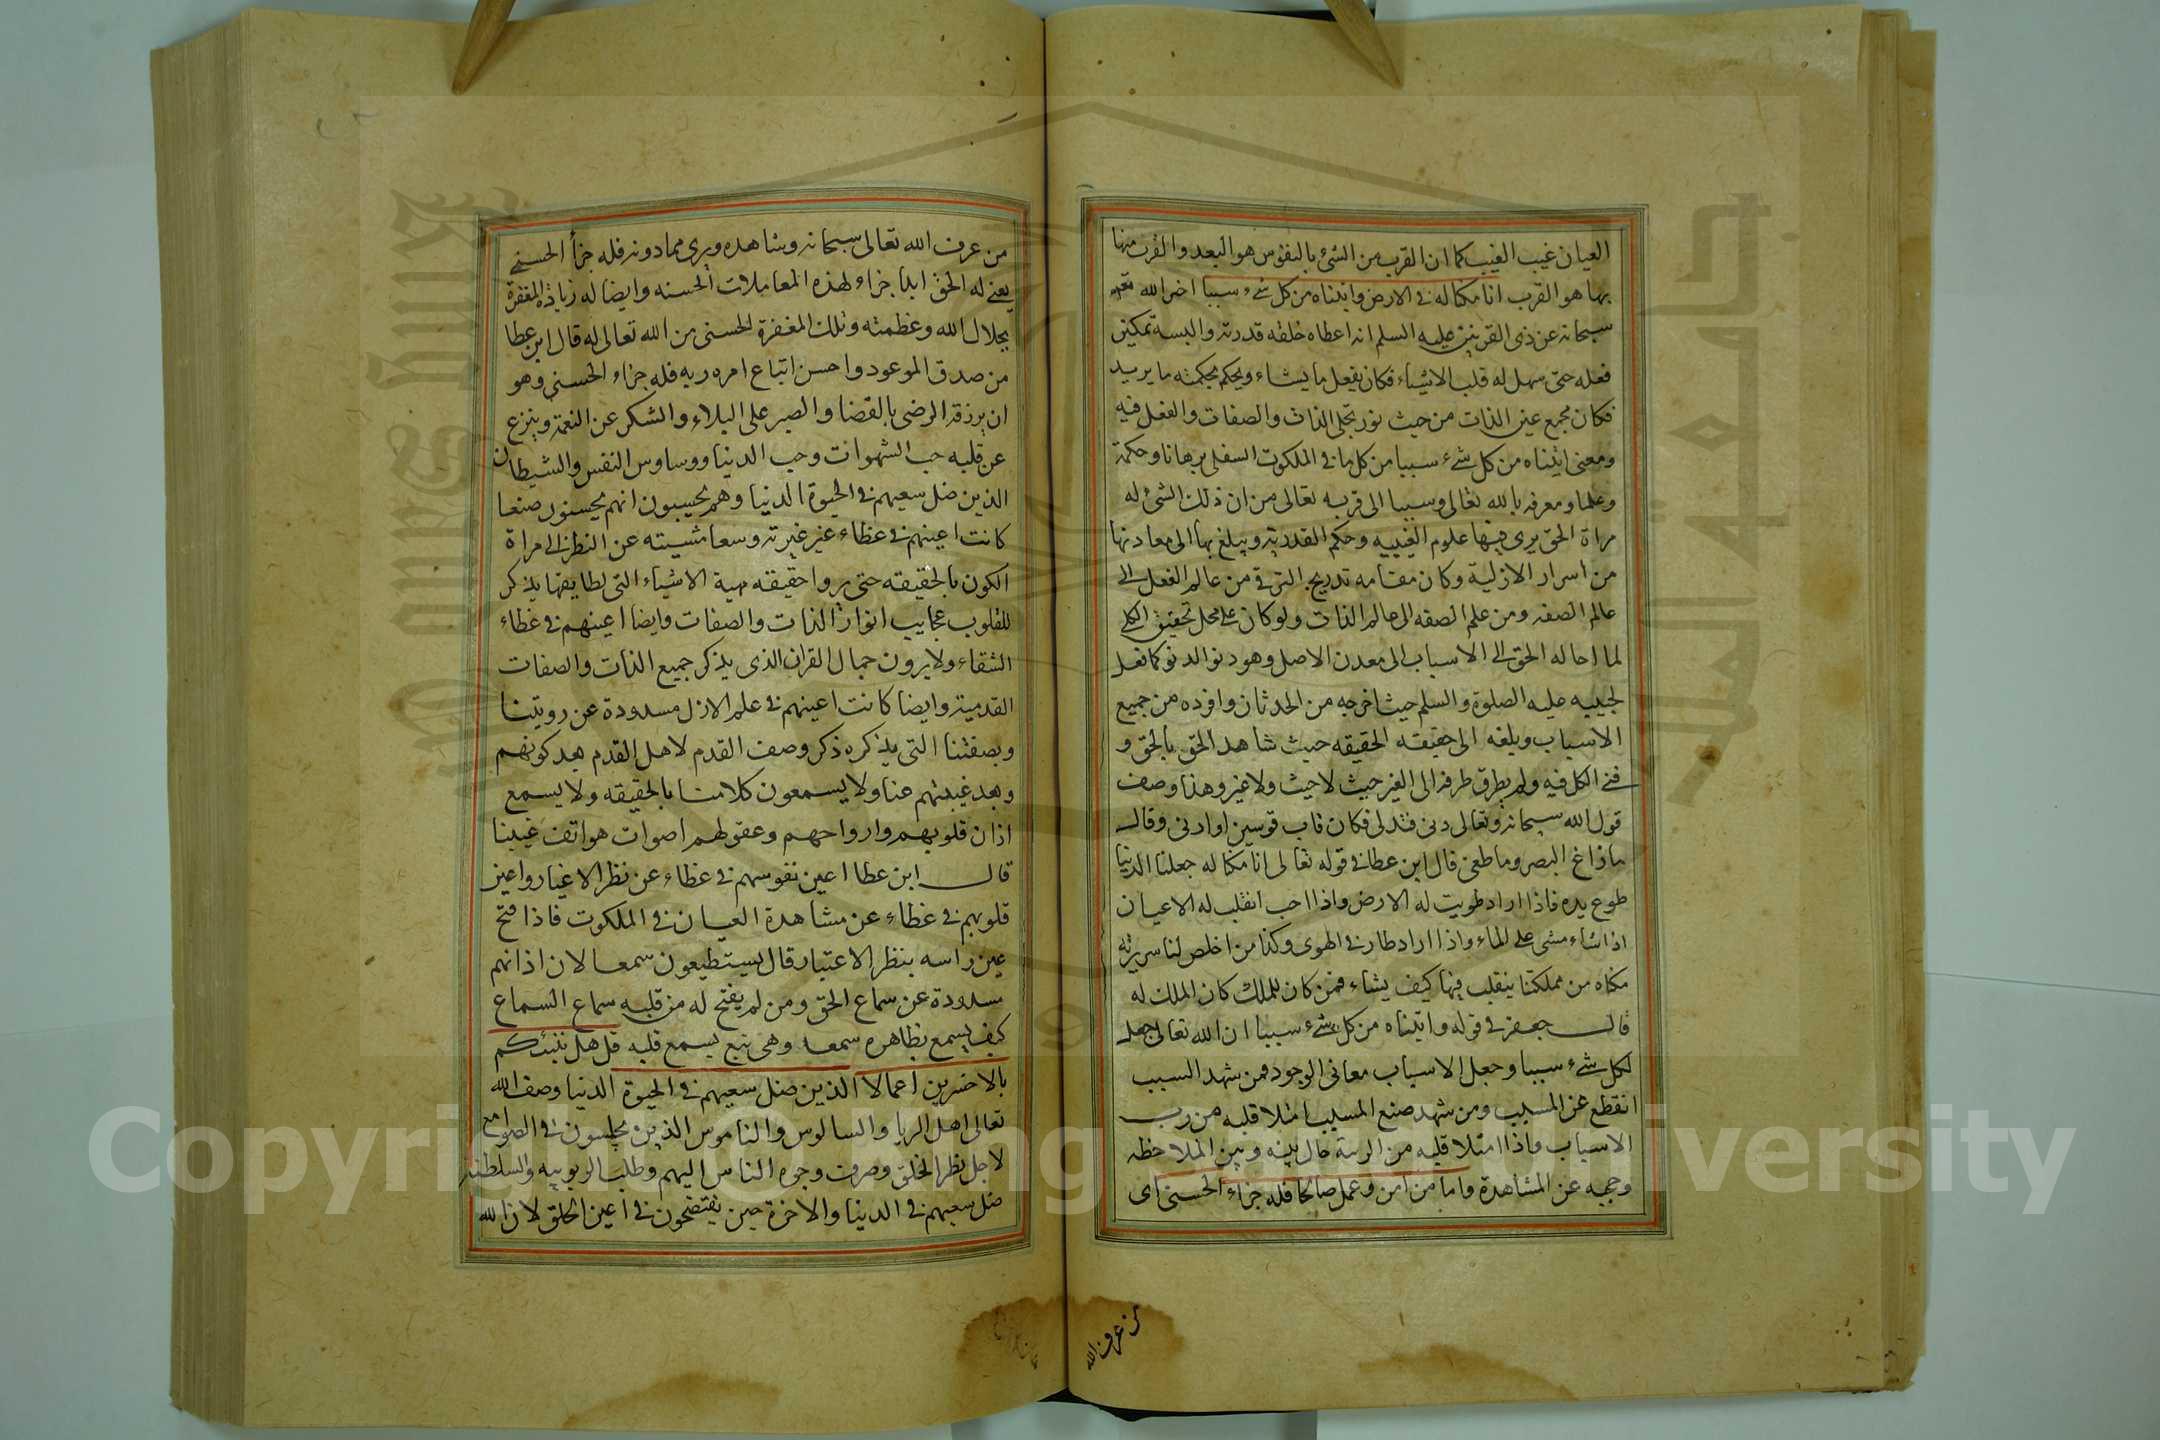 العيان غيب الغيب كما ان القرب من الشئ بالنفوس هو البعد والقرب منها
بها هو القرب انا مكنا له في الارض واتيناه من كل شيء سببا اخبر الله
سبحانه عن ذي القرنين عليه السلم انه اعطاه خلقه قدرته والبسة تمكين
فعله حتى سهل له قلب الاشياء فكان يفعل ما يشاء ويحكم بحكمته ما يريد
فكان مجمع عين الذات من حيث نور تجلى الذات والصفات والفعل فيه
ومعنى اتيناه من كل شيء سببا من كل ما في الملكوت السفلى برهانا وحكمة
وعلما ومعرفه بالله تعالى وسببا الى قربه تعالى من ان ذلك الشئ له
مراة الحق يرى فيها علوم الغيبيه وحكم القدريه ويبلغ بها الى معادنها
من اسرار الازلية وكان مقامه تدريج الترقي من عالم الفعل الى
عالم الصفه ومن علم الصفه الى عالم الذات ولو كان على محل تحقيق الكلي
لما احاله الحق الى الاسباب الى معدن الاصل وهو دنو الدنو كما فعل
لحبيبه عليه الصلوة والسلم حيث اخرجه من الحدثان وافرده من جميع
الاسباب وبلغه الى حقيقه الحقيقه حيث شاهد الحق بالحق و
فنى الكل فيه ولم يطرق طرفه الى الغير حيث لا حيث ولا غير وهذا وصف
قول الله سبحانه وتعالى دنى فتدلى فكان قاب قوسين او ادنى وقال
ما زاغ البصر وما طغى قال ابن عطا في قوله تعالى انا مكنا له جعلنا الدنيا
طوع يده فاذا اراد طويت له الارض واذا احب انقلب له الاعيان
اذا شاء مشى على الماء واذا اراد طار في الهوى وكذا من اخلص لنا سريرته
مكناه من مملكتنا ينقلب فيها كيف يشاء فمن كان للملك كان الملك له
قال جعفر في قوله واتيناه من كل شيء سببا ان الله تعالى جعل
لكل شيء سببا وجعل الاسباب معاني الوجود فمن شهد السبب
انقطع عن المسبب ومن شهد صنع المسبب امتلا قلبه من رب
الاسباب واذا امتلا قلبه من الريبة حال بينه وبين الملاحظه
وحجبه عن المشاهدة واما من امن وعمل صالحا فله جزاء الحسنى اى
من عرف الله
من عرف الله تعالى سبحانه وشاهده وبرى مما دونه فله جزأ الحسنى
يعني له الحق ابدا جزاء لهذه المعاملات الحسنه وايضا له زيادة المغفرة
بجلال الله وعظمته وتلك المغفرة الحسنى من الله تعالى له قال ابن عطا
من صدق الموعود واحسن اتباع امره ربه فله جزاء الحسنى وهو
ان يرزقه الرضى بالقضا والصبر على البلاء والشكر عن النعمة وينزع
عن قلبه حب الشهوات وحب الدنيا ووساوس النفس والشيطان
الذين ضل سعيهم في الحيوة الدنيا وهم يحسبون انهم يحسنون صنعا
كانت اعينهم في غطاء عن غيرته وسعا مشيته عن النظر الى مراة
الكون بالحقيقه حتى يروا حقيقه هية الاشياء التي لطايفها يذكر
للقلوب عجايب انوار الذات والصفات وايضا اعينهم في غطاء
الشقاء ولا يرون جمال القران الذى يذكر جميع الذات والصفات
القدمية وايضا كانت اعينهم في علم الازل مسدودة عن رويتنا
وبصفتنا التى يذكره ذكر وصف القدم لاهل القدم بعد كونهم
وبعد غيبتهم عنا ولا يسمعون كلامنا بالحقيقه ولا يسمع
اذان قلوبهم وارواحهم وعقولهم اصوات هواتف غيبنا
قال ابن عطا اعين نفوسهم في غطاء عن نظر الاعتبار واعين
قلوبهم في غطاء عن مشاهدة العيان في الملكوت فاذا فتح
عين راسه بنظر الاعتبار قال يستطيعون سمعا لان اذانهم
مسدودة عن سماع الحق ومن لم يفتح له من قلبه سماع السماع
كيف يسمع بظاهره سمعا وهى تبع يسمع قلبه قل هل ننبئكم
بالاخسرين اعمالا الذين ضل سعيهم في الحيوة الدنيا وصف الله
تعالى اهل الريا والسالوس والناموس الذين يجلسون في الصوامع
لاجل نظر الخلق وصرف وجوه الناس اليهم وطلب الربوبيه والسلطنة
ضل سعيهم في الدنيا والاخرة حين يفتضحون في اعين الخلق لان الله
Copyright © King Saud University